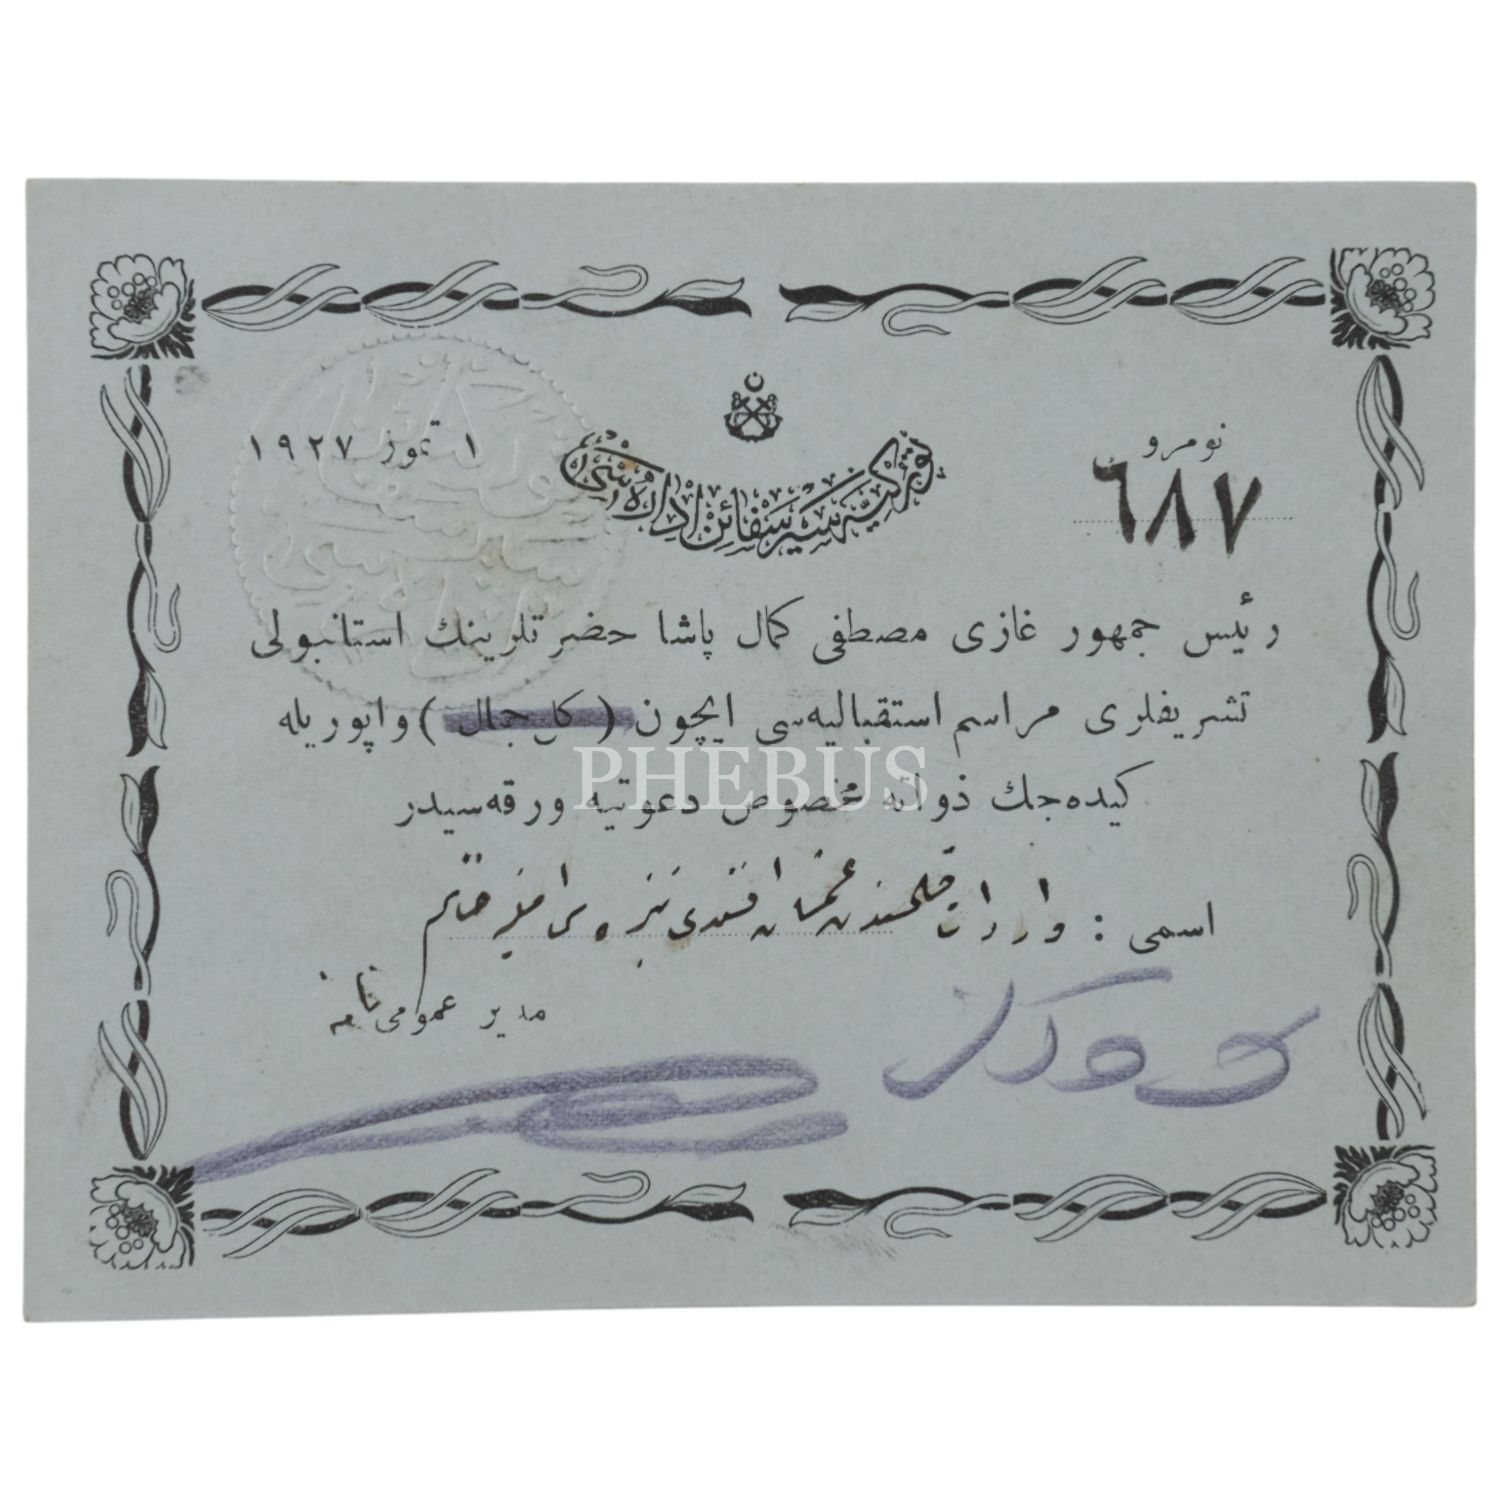 نومرو
٦٨٧
توركیه سیر سفائن اداره سی
١ تموز ١٩٢٧
رئیس جمهور غازی مصطفی كمال پاشا حضرتلرینك استانبولی
تشریفلری مراسم استقبالیه‌سی ایچون ( كل جمال ) واپوریله
كیده‌جك ذواته مخصوص دعوتیه ورقه‌سیدر
PHEBUS
اسمی : واردات قلمندن عثمان افندی خانم
مدیر عمومی